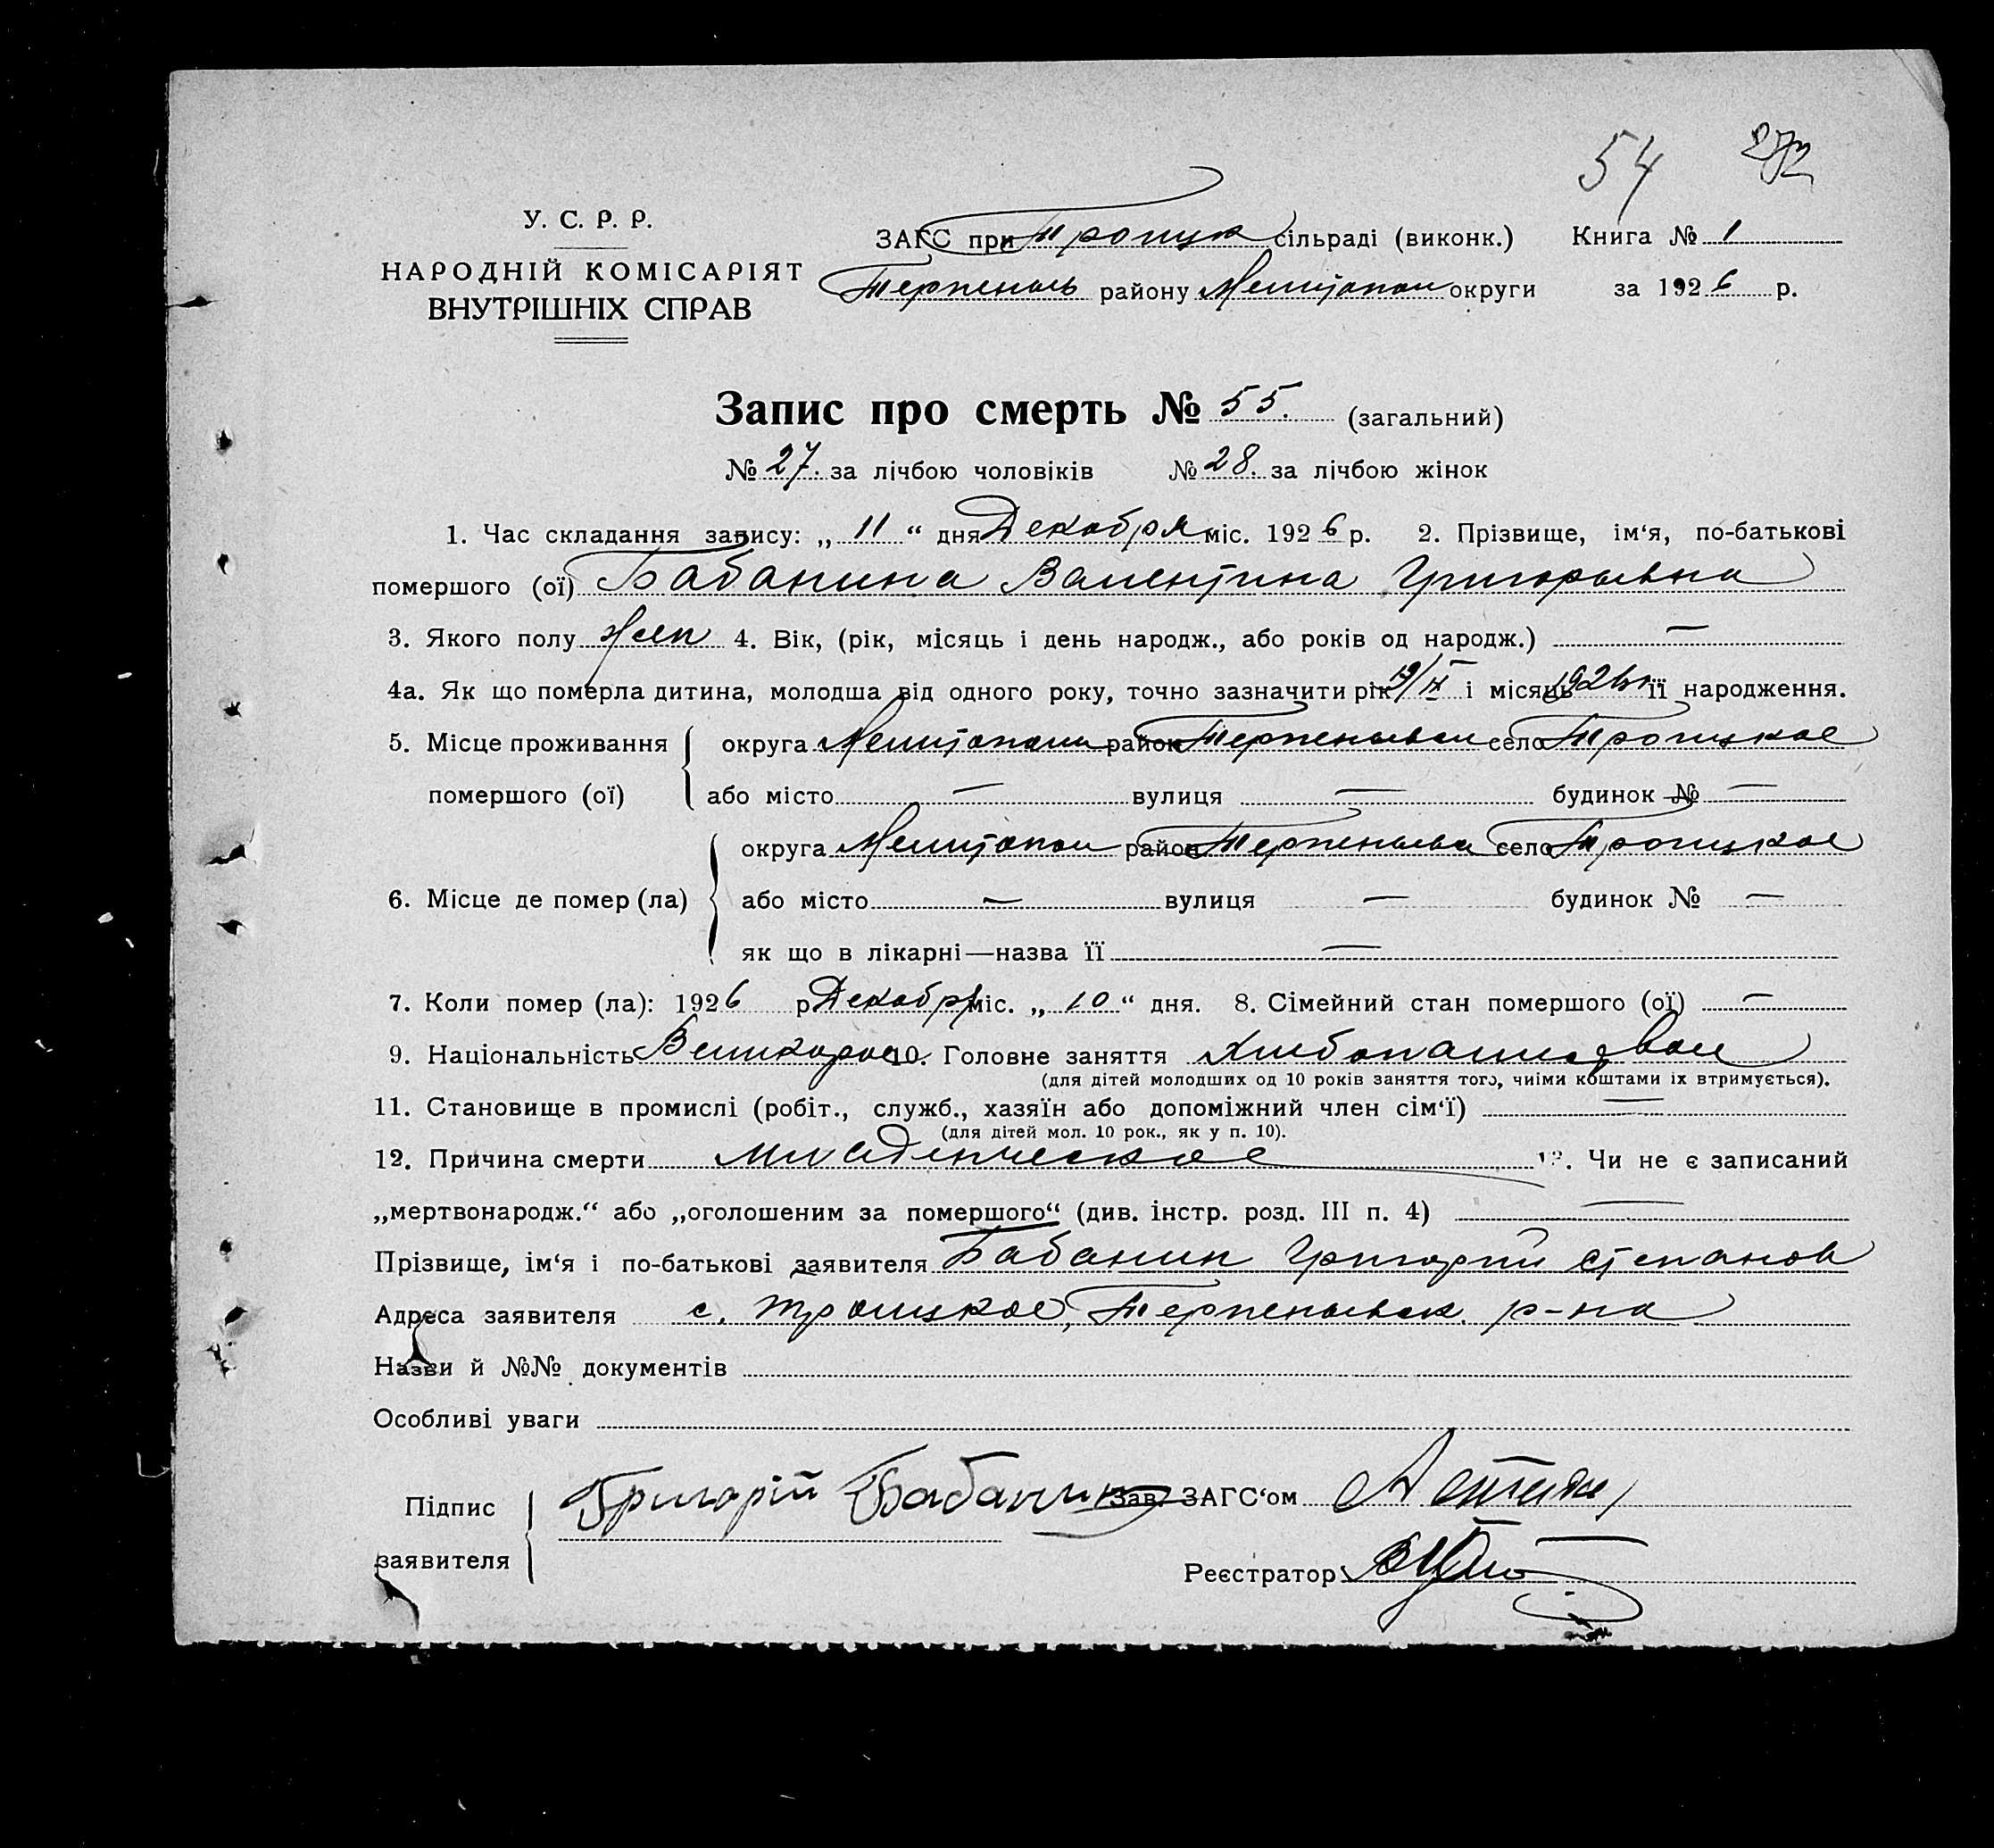 54 272
У. С. Р. Р.
НАРОДНІЙ КОМІСАРІЯТ
ВНУТРІШНІХ СПРАВ
ЗАГС при Троицк сільраді (виконк.) Книга № 1
Терпень району Мелитопол округи за 1926 р.
Запис про смерть № 55. (загальний)
№ 27. за лічбою чоловіків № 28. за лічбою жінок
1. Час складання запису: „ 11 “ дня Декабря міс. 1926 р. 2. Прізвище, ім‘я, по-батькові
помершого (ої) Бабанина Валентина Григорьевна
3. Якого полу жен 4. Вік, (рік, місяць і день народж., або років од народж.) —
4а. Як що померла дитина, молодша від одного року, точно зазначити рік 19/IX і місяць 1926 її народження.
5. Місце проживання округа Мелитопол район Терпеньевск село Троицкое
помершого (ої) або місто — вулиця — будинок № —
округа Мелитопол район Терпеньев село Троицкое
6. Місце де помер (ла) або місто — вулиця — будинок № —
як що в лікарні—назва її —
7. Коли помер (ла): 1926 р. Декабря міс. „ 10 “ дня. 8. Сімейний стан помершого (ої) —
9. Національність Великорос 10. Головне заняття
(для дітей молодших од 10 років заняття того, чиїми коштами їх втримується).
11. Становище в промислі (робіт., служб., хазяїн або допоміжний член сім‘ї) —
(для дітей мол. 10 рок., як у п. 10).
12. Причина смерти младенческое 13. Чи не є записаний
„мертвонародж.“ або „оголошеним за помершого“ (див. інстр. розд. III п. 4) —
Прізвище, ім‘я і по-батькові заявителя Бабанин Григорий Степанов
Адреса заявителя с. Троицкое, Терпеньевск. р-на
Назви й №№ документів
Особливі уваги
Підпис Григорій Бабанин Зав. ЗАГС‘ом
заявителя
Реєстратор